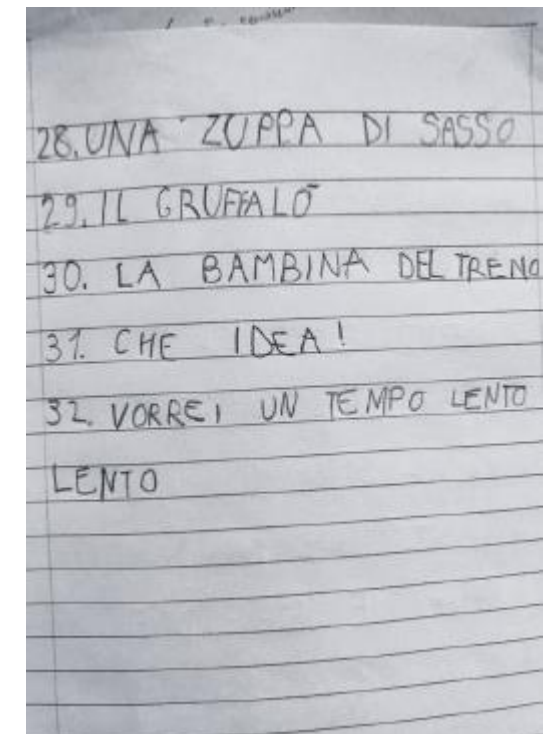 28. UNA ZUPPA DI SASSO
29. IL GRUFFALÒ
30. LA BAMBINA DEL TRENO
31. CHE IDEA!
32. VORREI UN TEMPO LENTO
LENTO